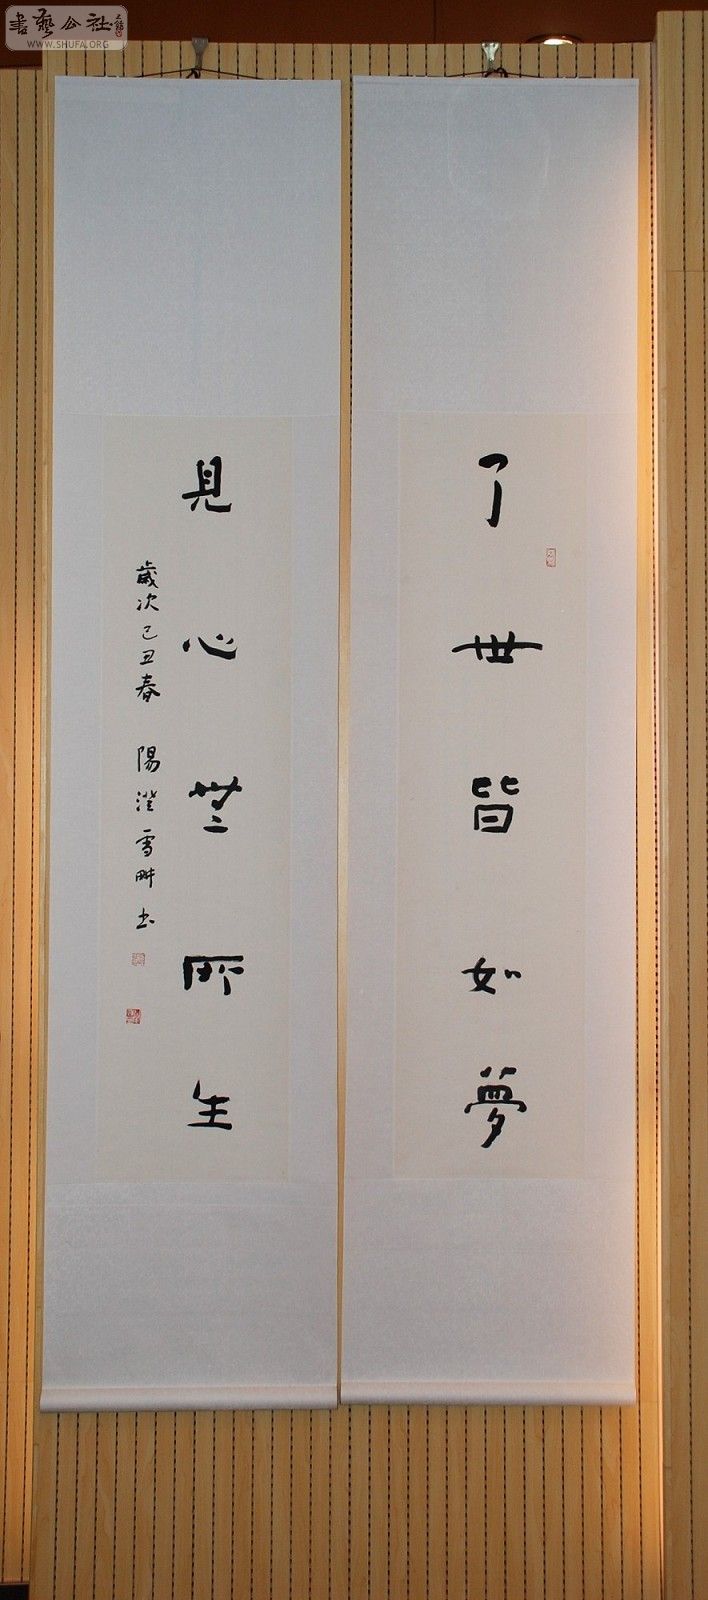 書藝公社
WWW.SHUFA.ORG
了世皆如夢
見心無所生
歲次己丑春 陽澄雪畊书